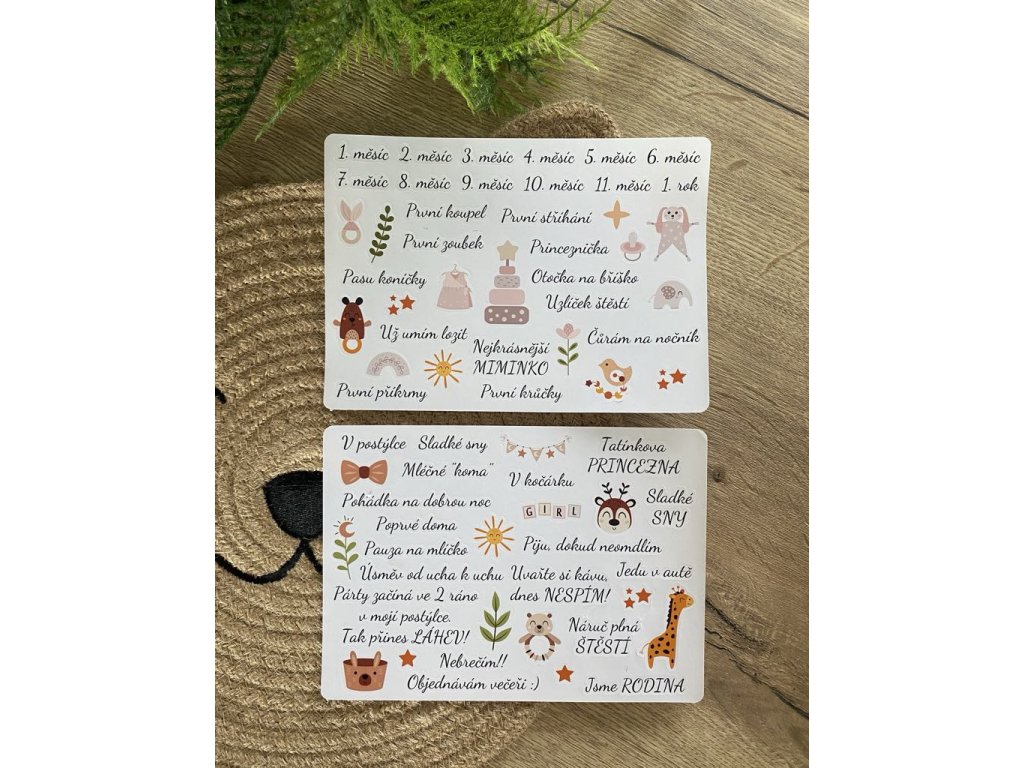 1. měsíc 2. měsíc 3. měsíc 4. měsíc 5. měsíc 6. měsíc
7. měsíc 8. měsíc 9. měsíc 10. měsíc 11. měsíc 1. rok
První koupel
První stříhání
První zoubek
Princeznička
Pasu koníčky
Otočka na bříško
Uzlíček štěstí
Už umím lozit
Čůrám na nočník
Nejkrásnější
MIMINKO
První příkrmy
První krůčky
V postýlce
Sladké sny
Tatínkova
PRINCEZNA
Mléčné "koma"
V kočárku
Pohádka na dobrou noc
Sladké
SNY
GIRL
Poprvé doma
Pauza na mlíčko
Piju, dokud neomdlím
Úsměv od ucha k uchu
Uvařte si kávu,
dnes NESPÍM!
Jedu v autě
Párty začíná ve 2 ráno
v mojí postýlce.
Tak přines LÁHEV!
Náruč plná
ŠTĚSTÍ
Nebrečím!!
Objednávám večeři :)
Jsme RODINA